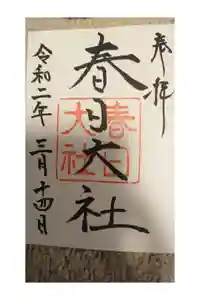 奉拝
春日大社
春日大社
令和二年 三月十四日